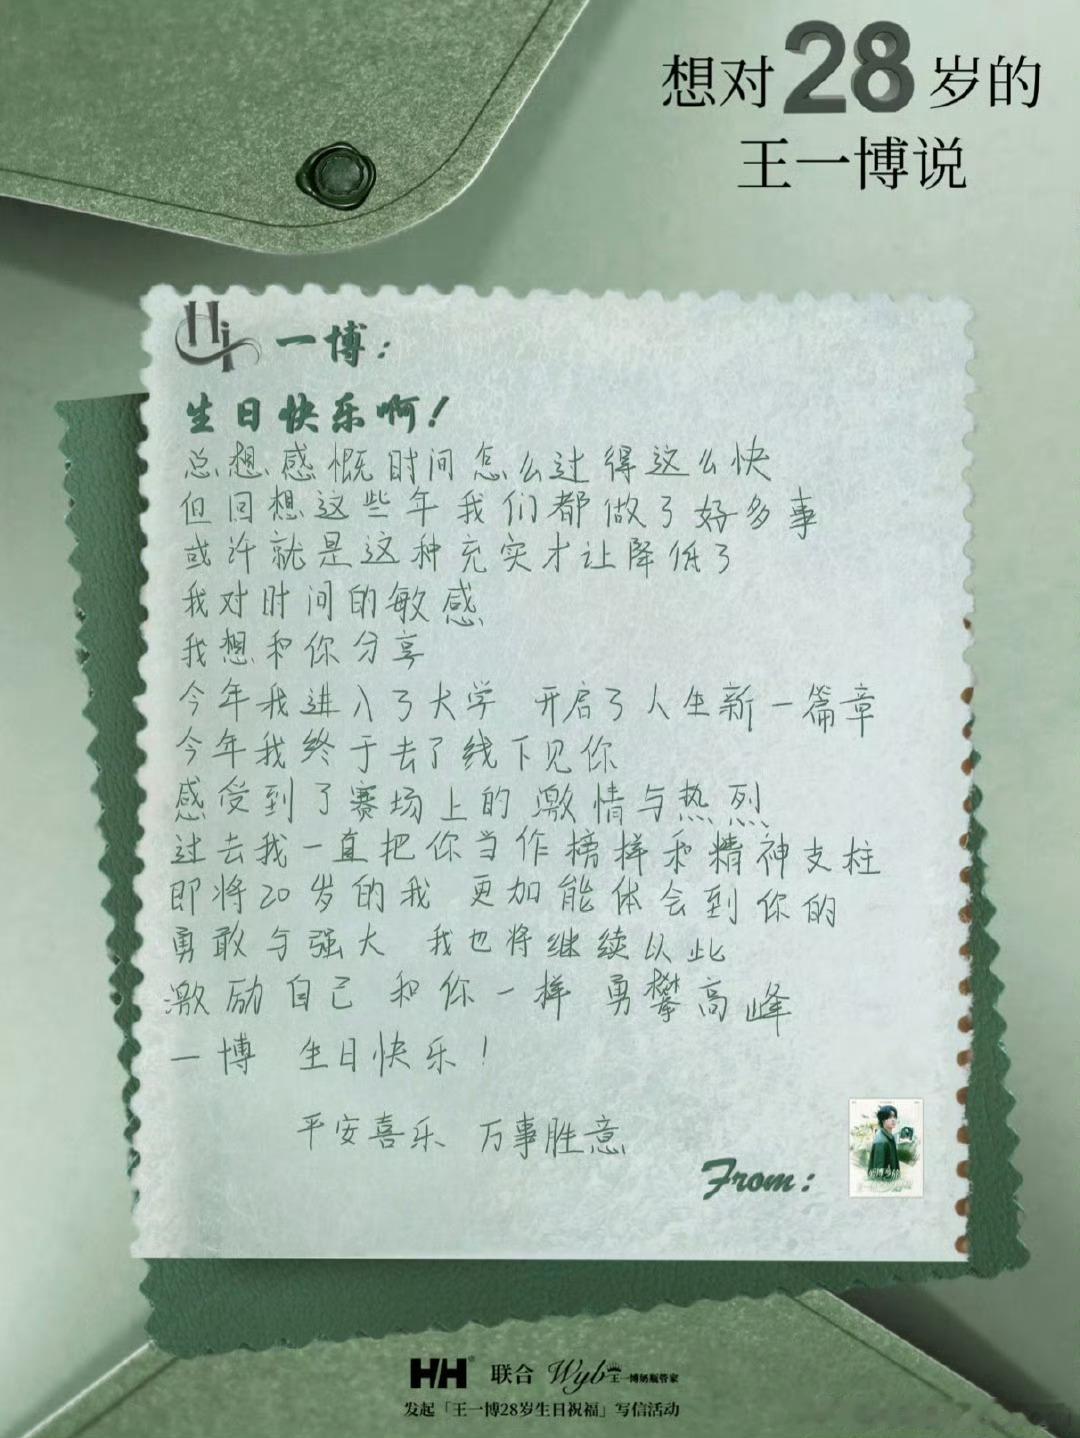 想对28岁的
王一博说
Hi 一博：
生日快乐啊！
总想感慨时间怎么过得这么快
但回想这些年我们都做了好多事
或许就是这种充实才让降低了
我对时间的敏感
我想和你分享
今年我进入了大学 开启了人生新一篇章
今年我终于去了线下见你
感受到了赛场上的激情与热烈
过去我一直把你当作榜样和精神支柱
即将20岁的我 更加能体会到你的
勇敢与强大 我也将继续以此
激励自己 和你一样 勇攀高峰
一博 生日快乐！
平安喜乐 万事胜意
From：
HH 联合 Wyb王一博奶瓶管家
发起「王一博28岁生日祝福」写信活动